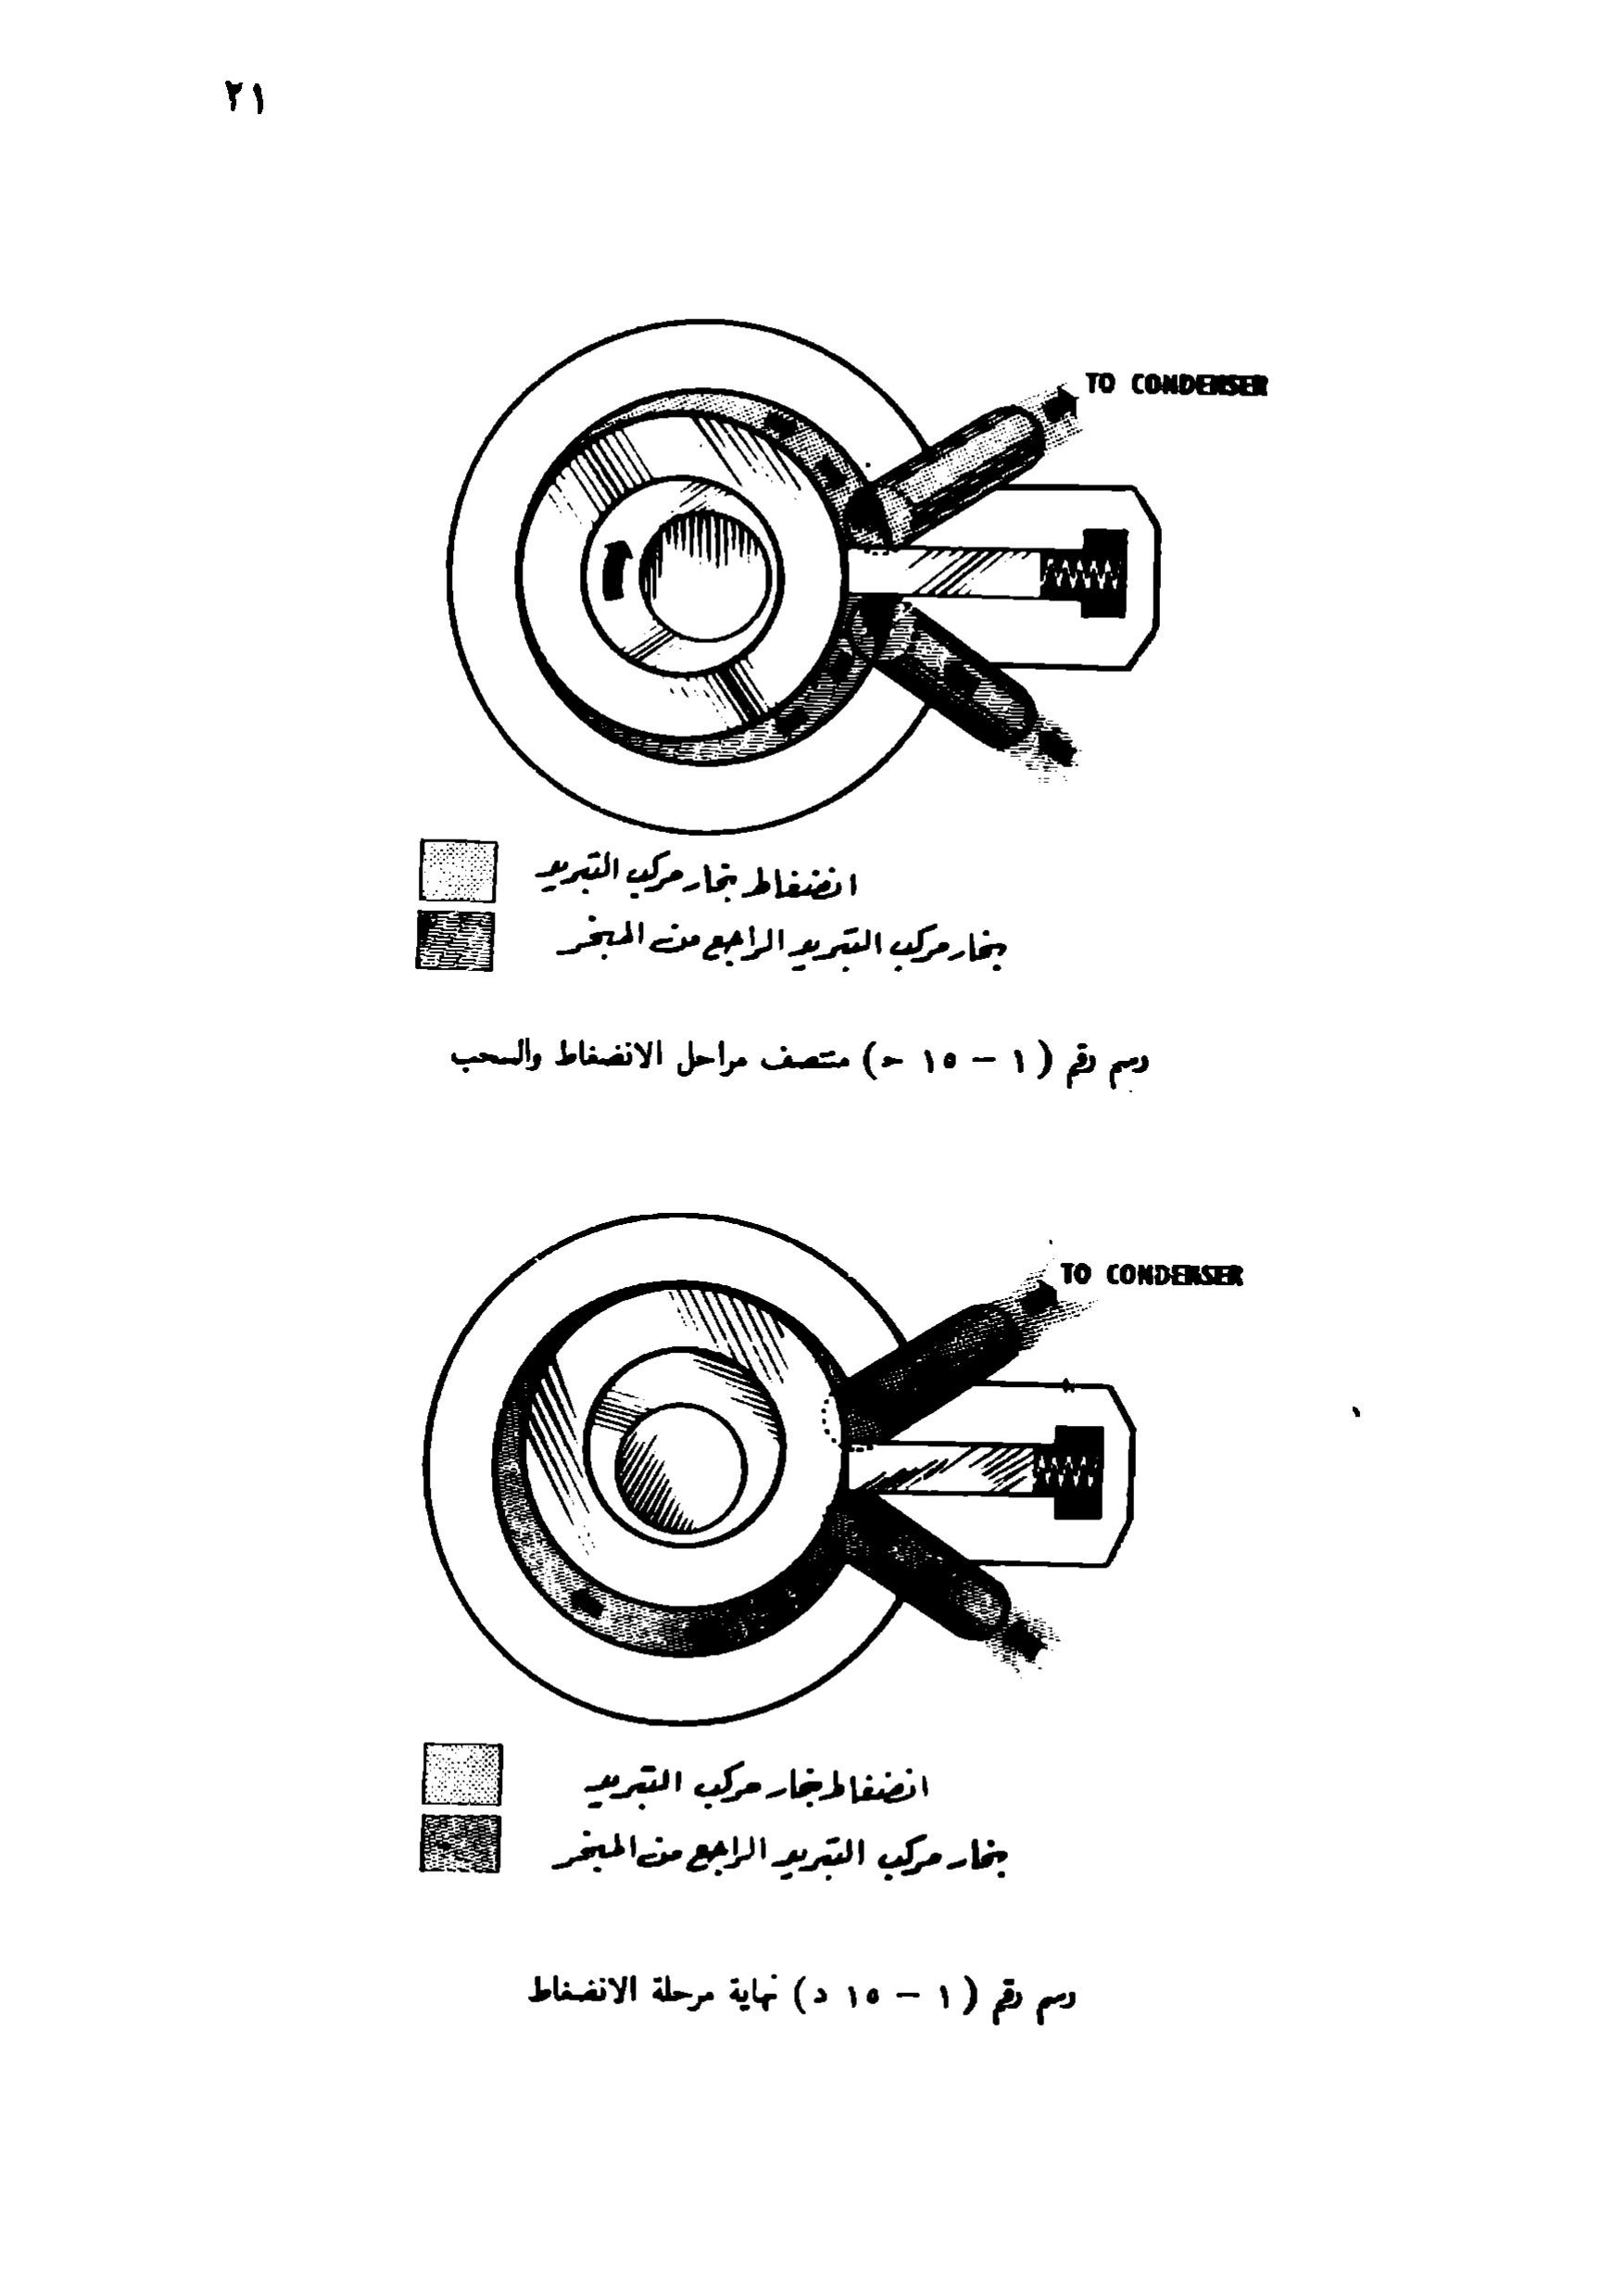 ٢١
TO CONDENSER
انضغاط بخار مركب التبريد
بخار مركب التبريد الراجع من المبخر
رسم رقم ( ١ – ١٥ ح) منتصف مراحل الانضغاط والسحب
TO CONDENSER
انضغاط بخار مركب التبريد
بخار مركب التبريد الراجع من المبخر
رسم رقم ( ١ – ١٥ د) نهاية مرحلة الانضغاط